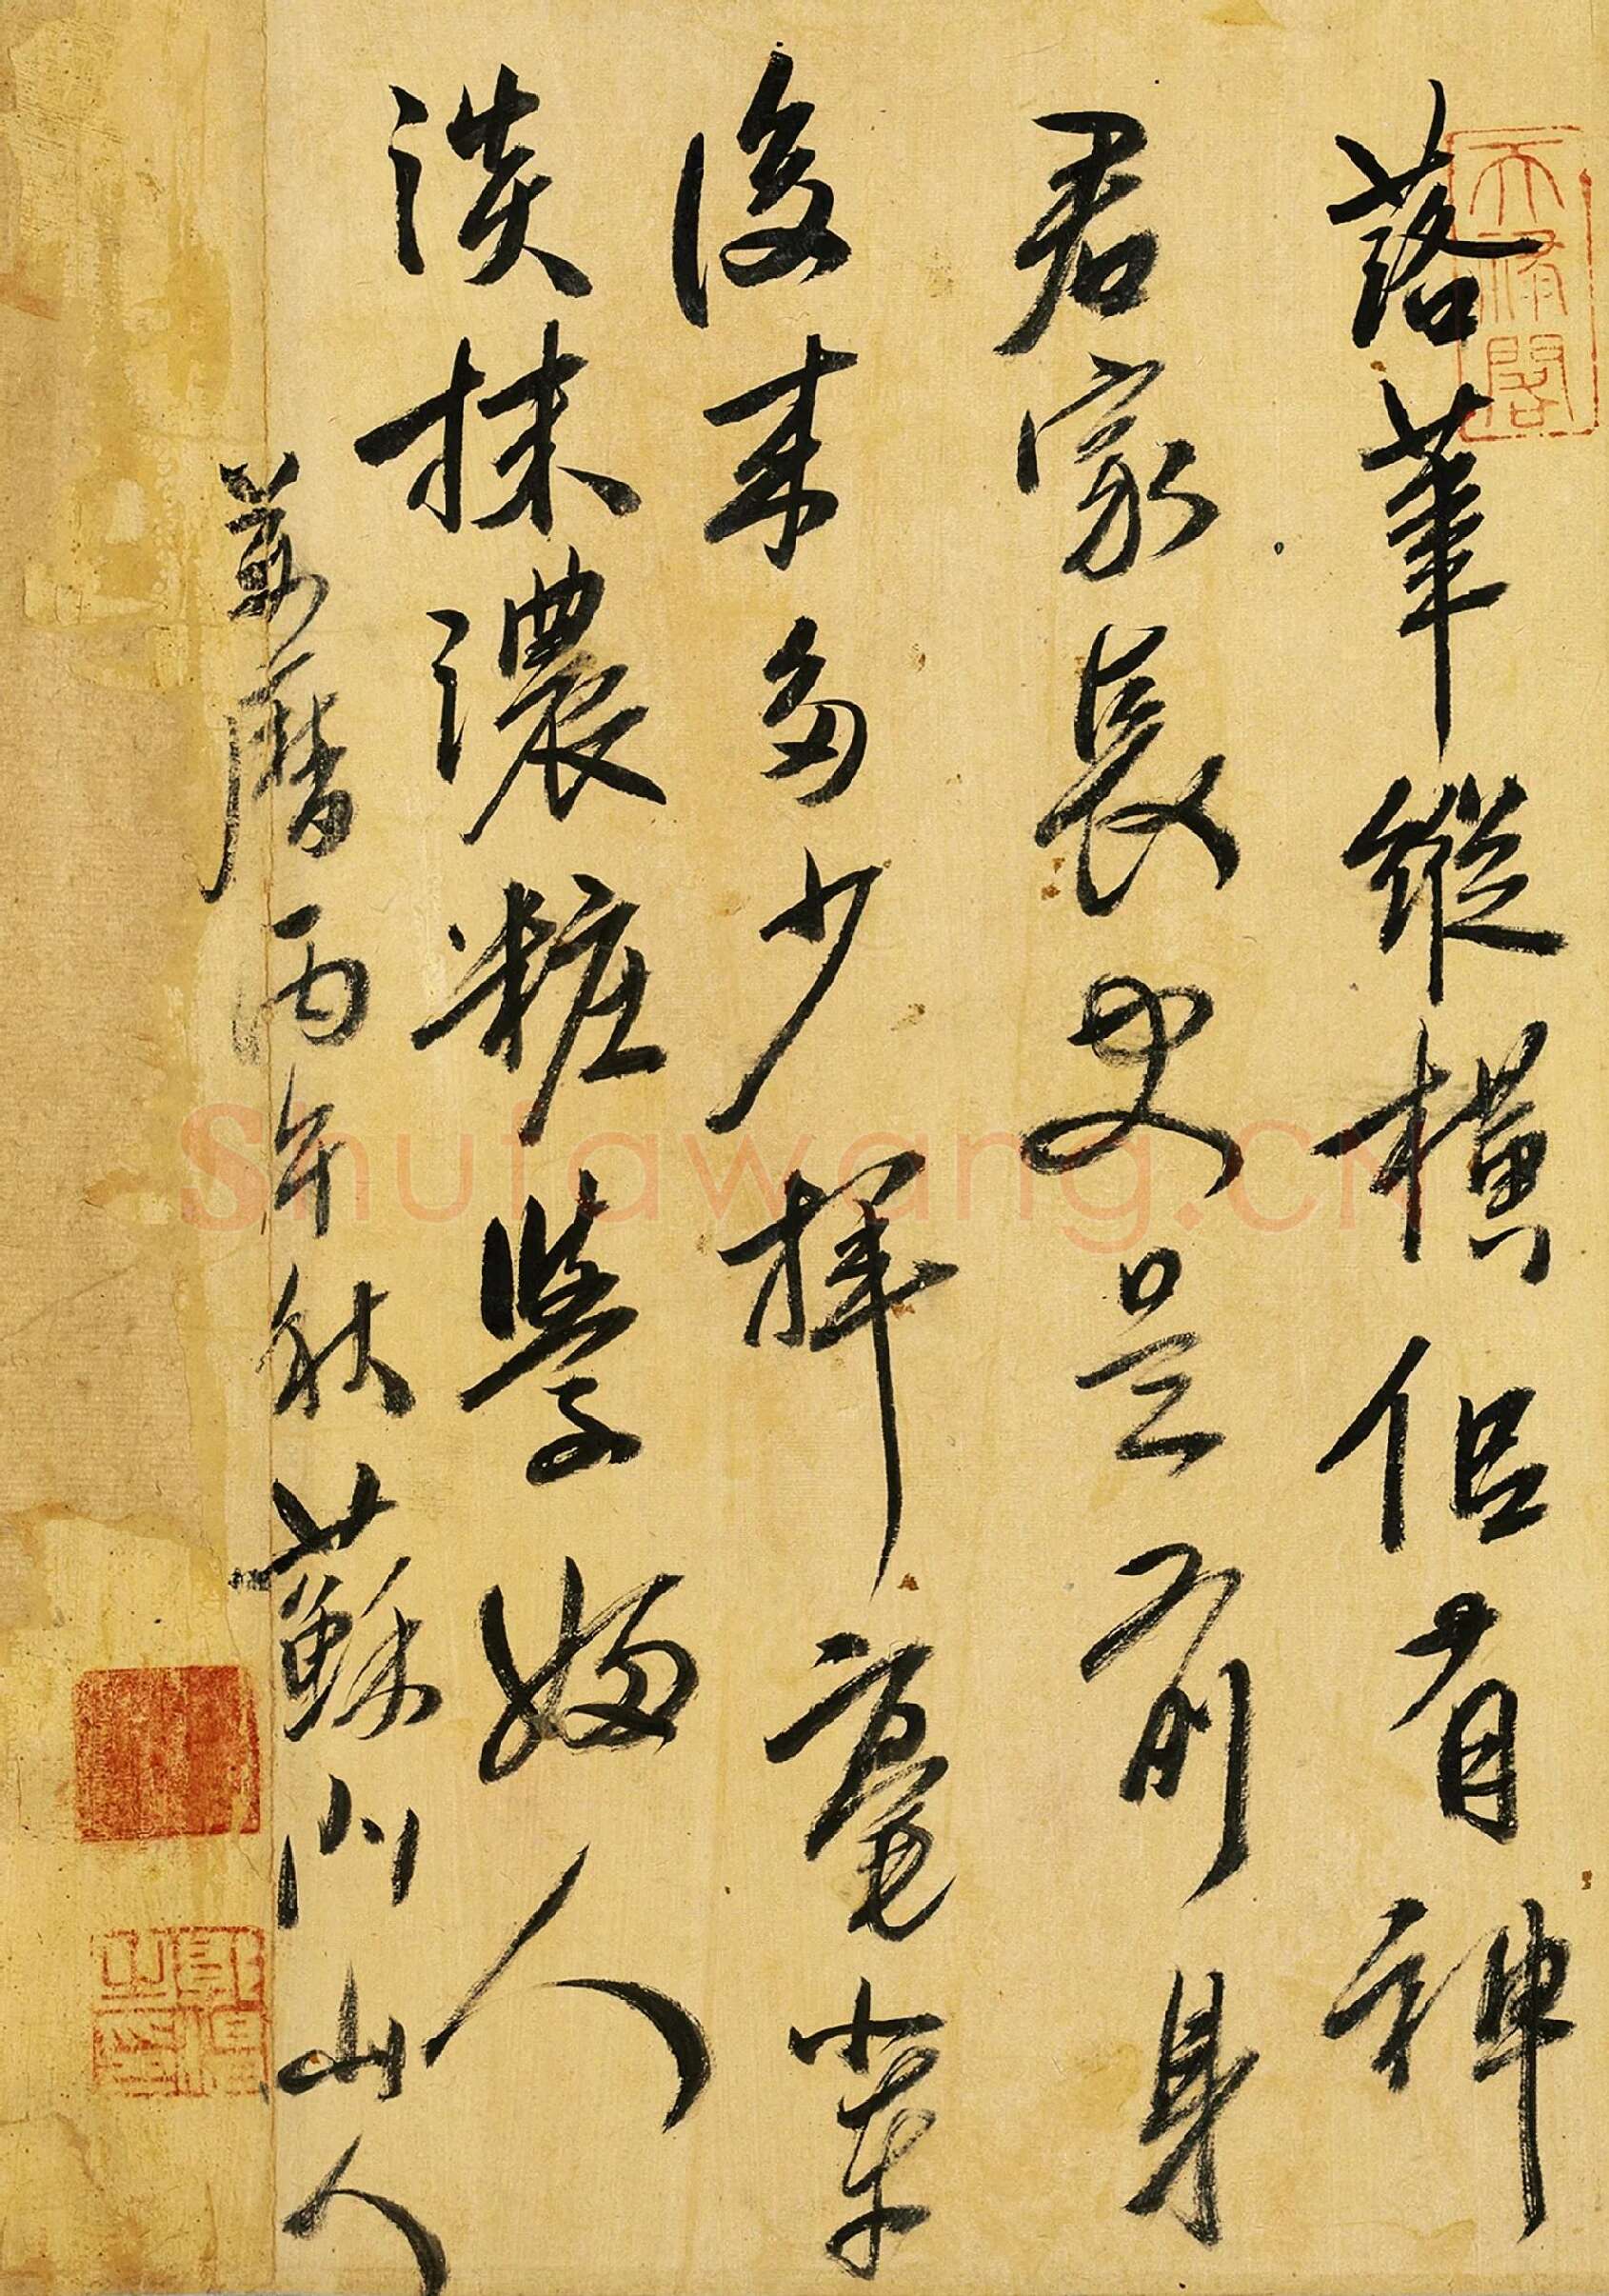 落筆縱橫佀有神
君家長史是前身
後來多少揮毫輩
淡抹濃粧學婦人
萬曆丙午秋蘇門山人
shufawang.cn